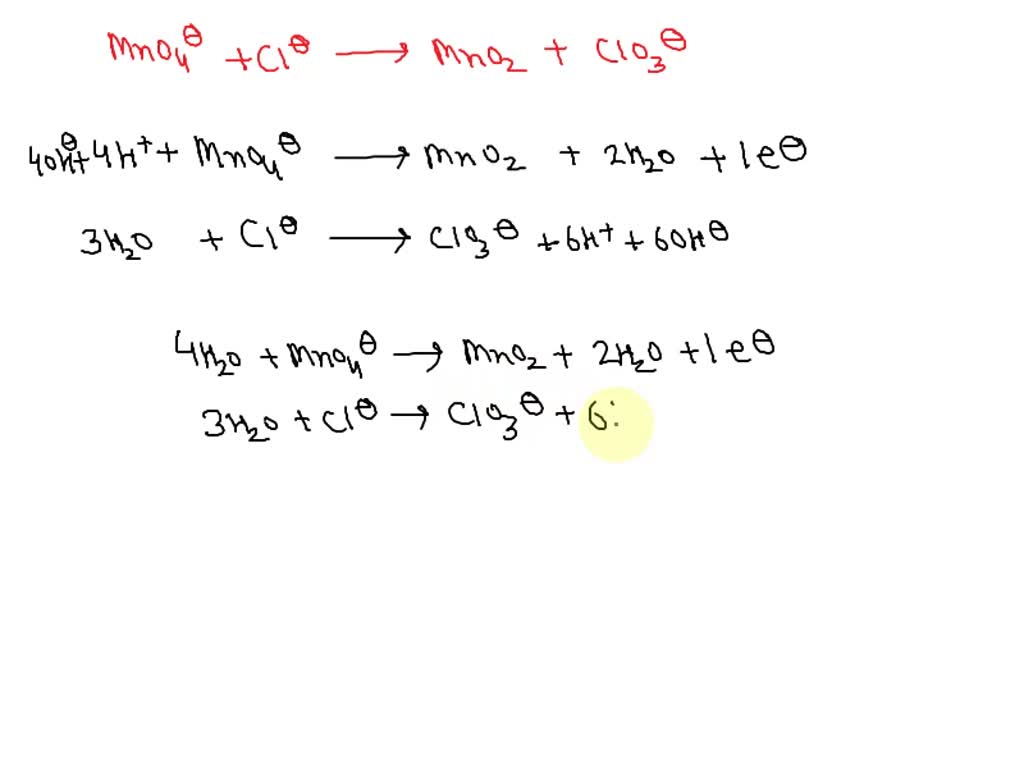 MnO₄⊖ + Cl⊖ ⟶ MnO₂ + ClO₃⊖
4OH⊖ + 4H⁺ + MnO₄⊖ ⟶ MnO₂ + 2H₂O + 1e⊖
3H₂O + Cl⊖ ⟶ ClO₃⊖ + 6H⁺ + 6OH⊖
4H₂O + MnO₄⊖ ⟶ MnO₂ + 2H₂O + 1e⊖
3H₂O + Cl⊖ ⟶ ClO₃⊖ + 6